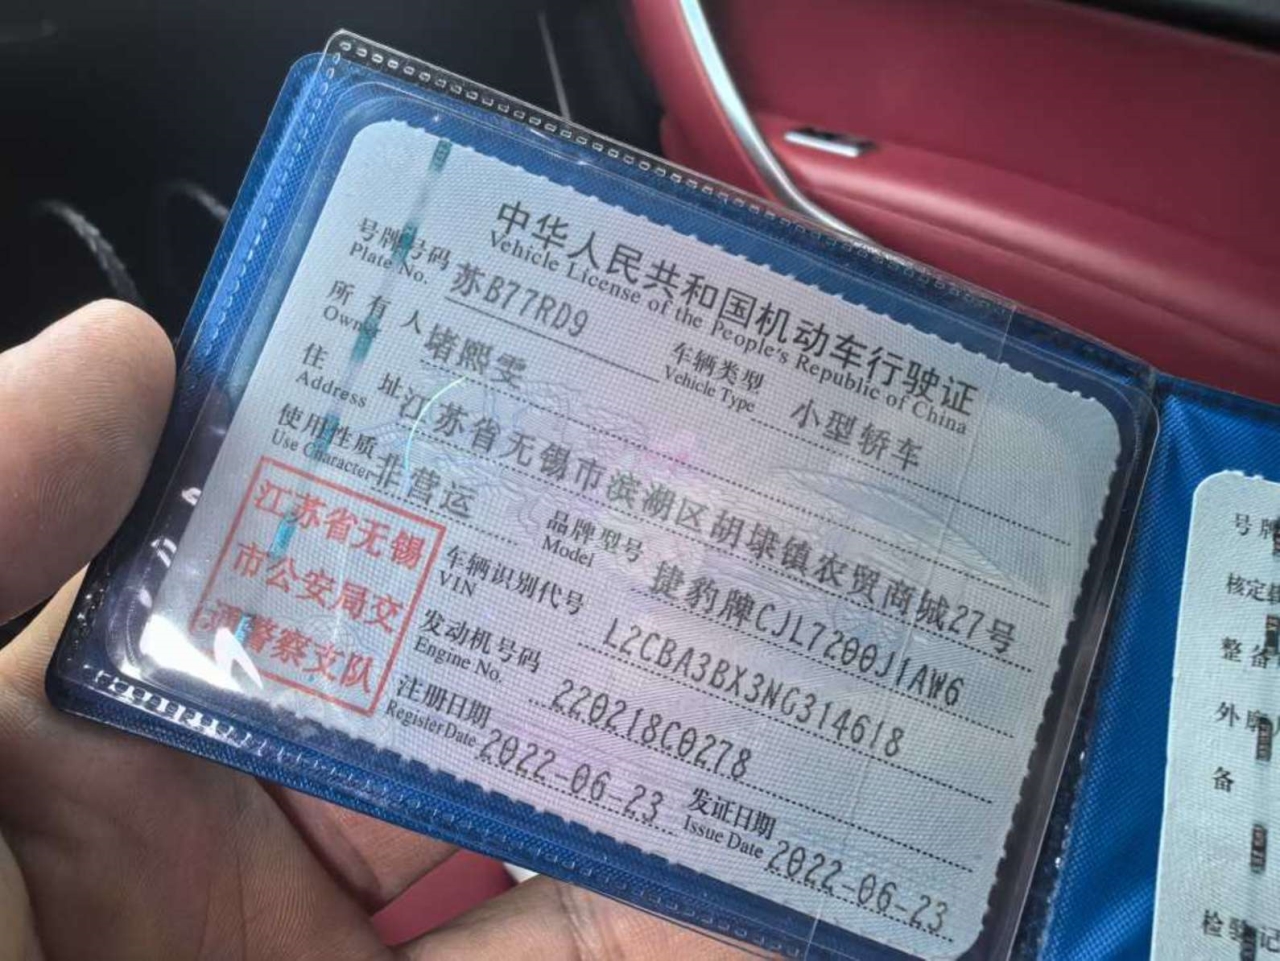 中华人民共和国机动车行驶证
Vehicle License of the People's Republic of China
号牌号码 苏B77RD9 车辆类型 小型轿车
Plate No. Vehicle Type
所有人 堵熙雯
Owner
住址 江苏省无锡市滨湖区胡埭镇农贸商城27号
Address
使用性质 非营运 品牌型号 捷豹牌CJL7200J1AW6
Use Character Model
江苏省无锡
市公安局交
通警察支队
车辆识别代号 L2CBA3BX3NG314618
VIN
发动机号码 220218C0278
Engine No.
注册日期 2022-06-23 发证日期 2022-06-23
Register Date Issue Date
号牌
核定
整备
外廓
备
检验记